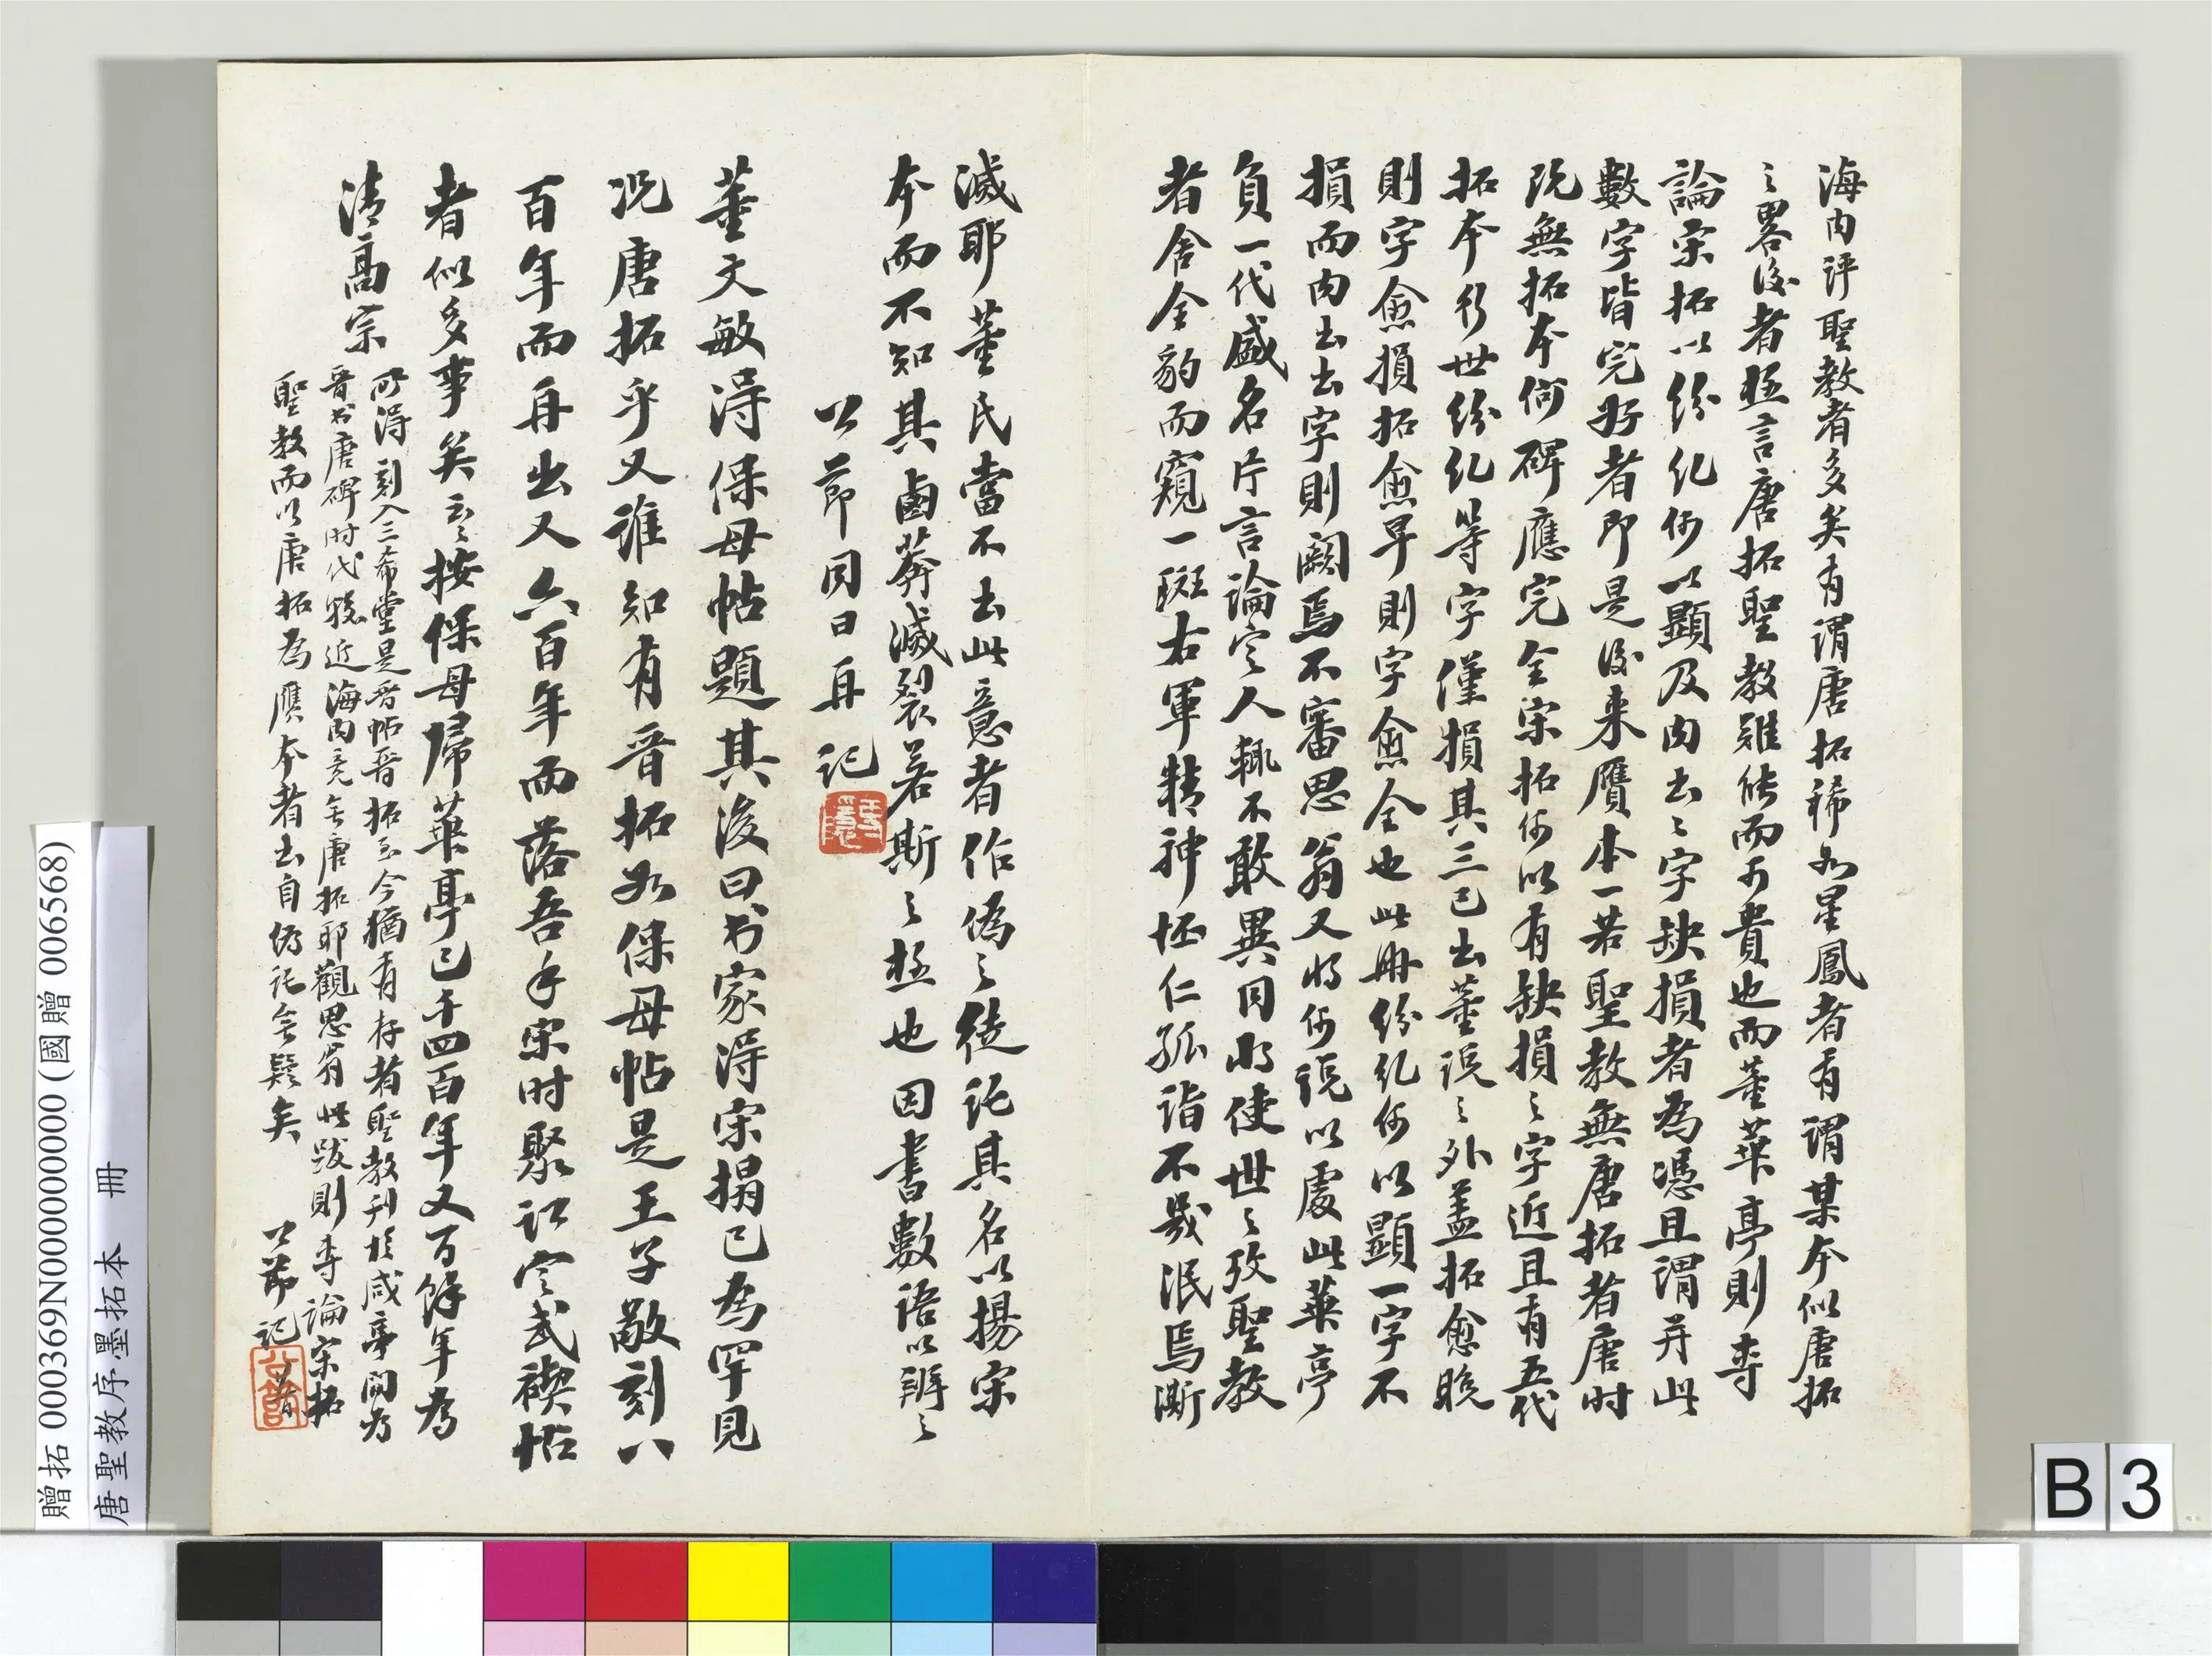 海內评聖教者多矣有谓唐拓稀如星鳳者有谓某本似唐拓
之畧後者極言唐拓聖教難能而可貴也而董華亭則專
論宋拓以纷纠何以顯及內出之字缺損者為憑且謂并此
數字皆完好者即是後来贋本一若聖教無唐拓者唐时
既無拓本何碑應完全宋拓何以有缺損之字近且有五代
拓本行世纷纠等字僅損其三已出董说之外盖拓愈晚
則字愈損拓愈早則字愈全也此冊纷纠何以顯一字不
損而內出出字則闕焉不審思翁又将何说以處此華亭
負一代盛名片言論定人輒不敢異同将使世之攷聖教
者舍全豹而窺一斑右軍精神怪仁孤詣不幾泯焉澌
滅耶董氏當不出此意者作偽之徒託其名以揚宋
本而不知其鹵莽滅裂若斯之極也因書數语以辨之
公節同日再记
董文敏得保母帖題其後曰书家得宋搨已為罕見
况唐拓乎又谁知有晋拓如保母帖是王子敬刻八
百年而再出又六百年而落吾手宋时聚讼定武禊帖
者似多事矣云云按保母帰華亭已千四百年又百餘年為
清高宗
所得刻入三希堂是晋帖晋拓至今猶有存者聖教刊於咸亨间为
晋书唐碑时代较近海內竟無唐拓耶觀思翁此跋則专論宋拓
聖教而以唐拓為贋本者出自偽託無疑矣
公節记
贈拓 000369N000000000 (國贈 006568)
唐聖教序墨拓本 冊
B 3